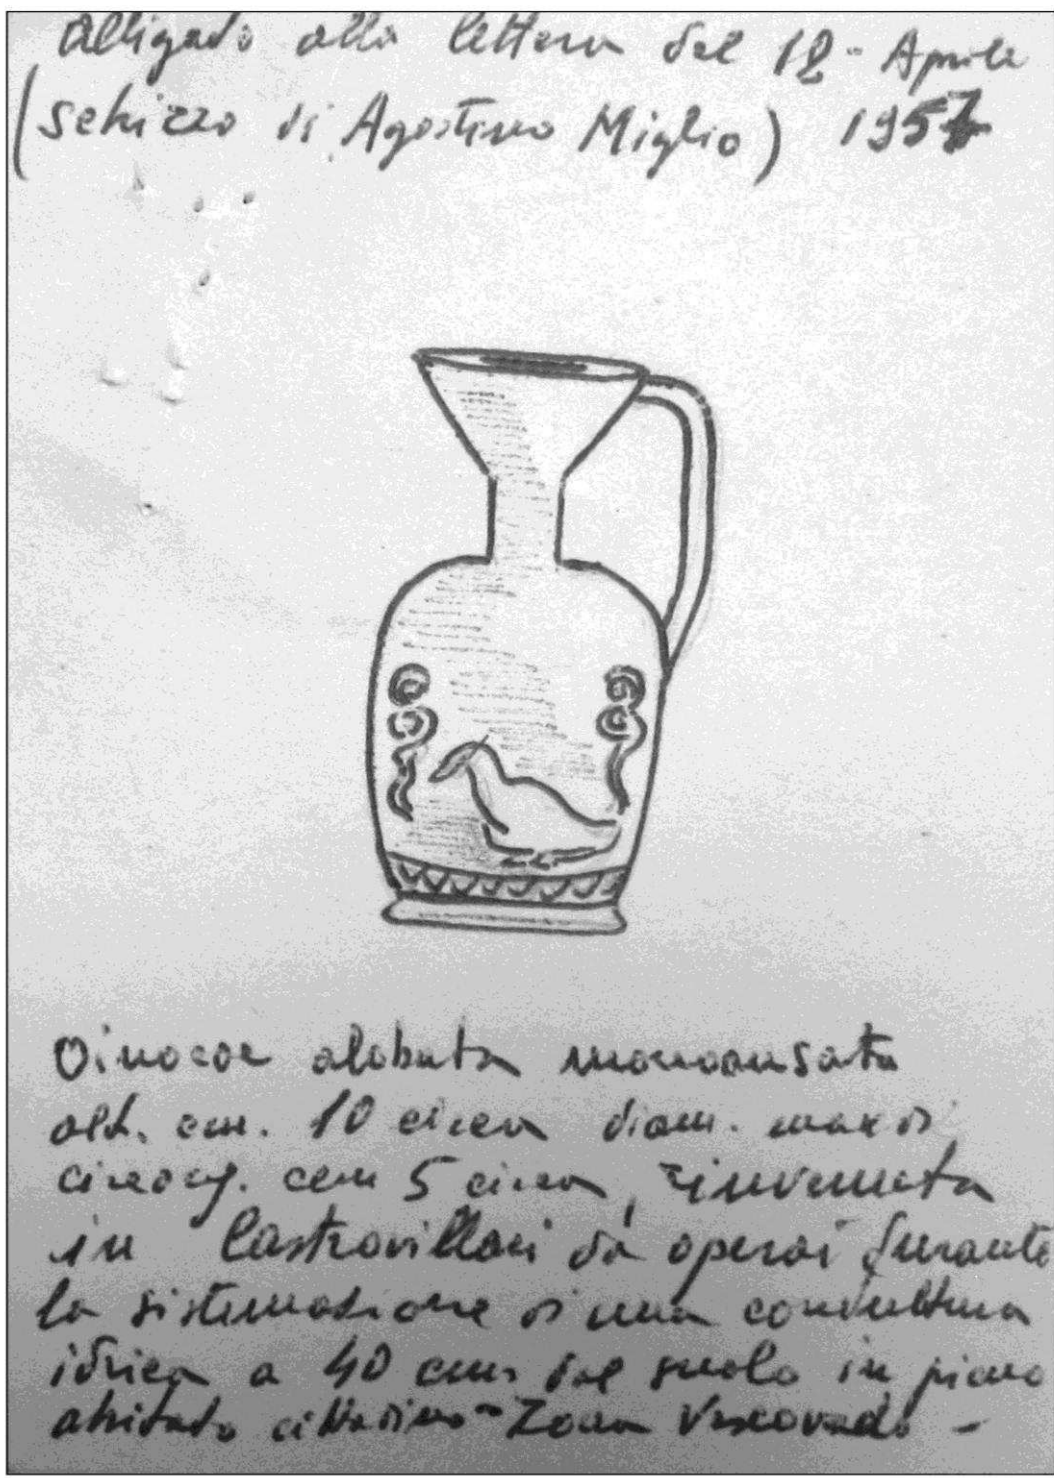 Alligado alla lettera del 12 - Aprile
(schizzo di Agostino Miglio) 1957
Oinocoe alobata monoansata
alt. cm. 10 circa diam. max di
circonf. cm 5 circa, rinvenuta
in Castrovillari da operai durante
la sistemazione di una conduttura
idrica a 40 cm. dal suolo in pieno
abitato cittadino - Zona Vescovado -